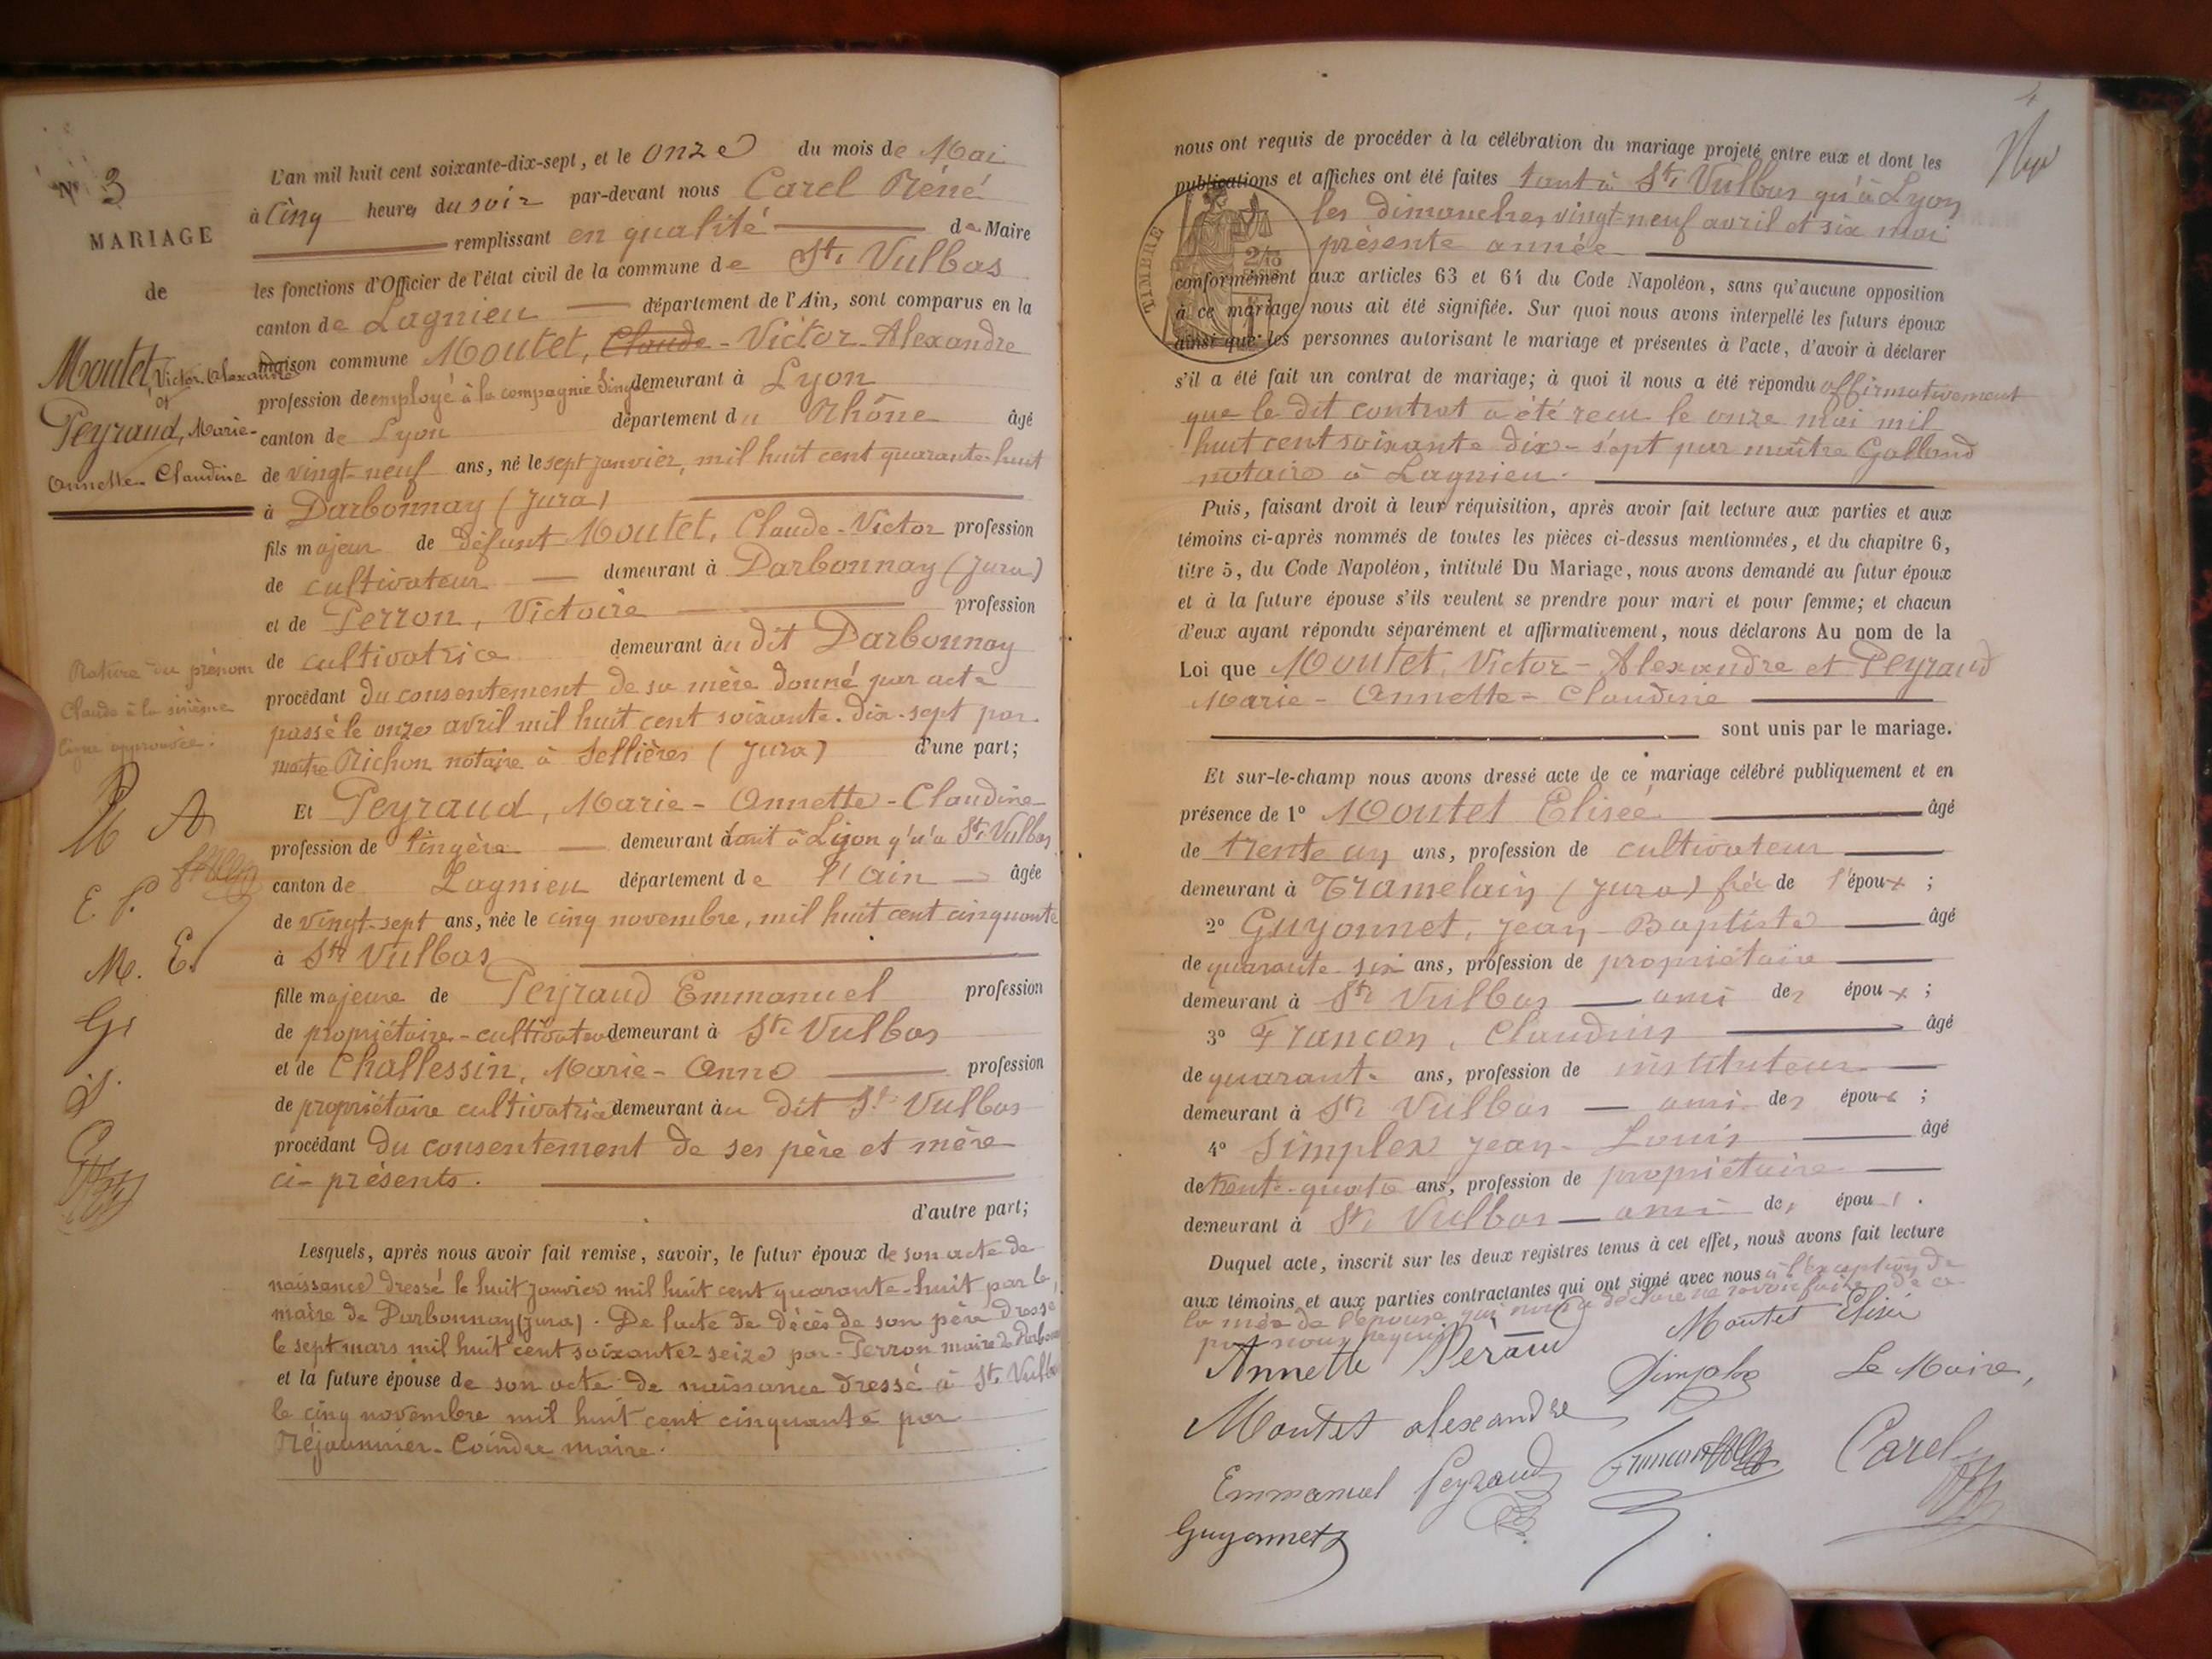 N° 3
MARIAGE
de
Moutet, Victor-Alexandre
et
Peyraud, Marie-
Annette-Claudine
L'an mil huit cent soixante-dix-sept, et le onze du mois de Mai
à Cinq heures du soir par-devant nous Carel Réné
remplissant en qualité de Maire
les fonctions d'Officier de l'état civil de la commune de St. Vulbas
canton de Lagnieu département de l'Ain, sont comparus en la
maison commune Moutet, Claude-Victor-Alexandre
profession de employé à la compagnie demeurant à Lyon
canton de Lyon département du Rhône âgé
de vingt-neuf ans, né le sept janvier, mil huit cent quarante-huit
à Darbonnay (Jura)
fils majeur de défunt Moutet, Claude-Victor profession
de cultivateur demeurant à Darbonnay (Jura)
et de Perron, Victoire profession
de cultivatrice demeurant au dit Darbonnay
procédant du consentement de sa mère donné par acte
passé le onze avril mil huit cent soixante-dix-sept par
maître Richon notaire à Sellières (Jura) d'une part;
Et Peyraud, Marie-Annette-Claudine
profession de lingère demeurant à tant à Lyon qu'à St. Vulbas
canton de Lagnieu département de l'Ain âgée
de vingt-sept ans, née le cinq novembre, mil huit cent cinquante
à St. Vulbas
fille majeure de Peyraud Emmanuel profession
de propriétaire-cultivateur demeurant à St. Vulbas
et de Challessin, Marie-Anne profession
de propriétaire cultivatrice demeurant au dit St. Vulbas
procédant du consentement de ses père et mère
ci-présents.
d'autre part;
Lesquels, après nous avoir fait remise, savoir, le futur époux de son acte de
naissance dressé le huit janvier mil huit cent quarante-huit par le
maire de Darbonnay (Jura). De l'acte de décès de son père dressé
le sept mars mil huit cent soixante-seize par Perron maire de
et la future épouse de son acte de naissance dressé à St. Vulbas
le cinq novembre mil huit cent cinquante par
Coindre maire.
Rature du prénom
Claude à la sixième
ligne approuvée.
M A
E. P.
M. E.
G.
S.
C
4
nous ont requis de procéder à la célébration du mariage projeté entre eux et dont les
publications et affiches ont été faites tant à St. Vulbas qu'à Lyon
les dimanches vingt-neuf avril et six mai
présente année
TIMBRE
2/10
conformément aux articles 63 et 64 du Code Napoléon, sans qu'aucune opposition
à ce mariage nous ait été signifiée. Sur quoi nous avons interpellé les futurs époux
ainsi que les personnes autorisant le mariage et présentes à l'acte, d'avoir à déclarer
s'il a été fait un contrat de mariage; à quoi il nous a été répondu affirmativement
que le dit contrat a été reçu le onze mai mil
huit cent soixante dix-sept par maître Galland
notaire à Lagnieu.
Puis, faisant droit à leur réquisition, après avoir fait lecture aux parties et aux
témoins ci-après nommés de toutes les pièces ci-dessus mentionnées, et du chapitre 6,
titre 5, du Code Napoléon, intitulé Du Mariage, nous avons demandé au futur époux
et à la future épouse s'ils veulent se prendre pour mari et pour femme; et chacun
d'eux ayant répondu séparément et affirmativement, nous déclarons Au nom de la
Loi que Moutet, Victor-Alexandre et Peyraud
Marie-Annette-Claudine
sont unis par le mariage.
Et sur-le-champ nous avons dressé acte de ce mariage célébré publiquement et en
présence de 1° Moutet Elisée âgé
de trente un ans, profession de cultivateur
demeurant à Tramelain (Jura) frère de l'époux ;
2° Guyonnet, Jean-Baptiste âgé
de quarante six ans, profession de propriétaire
demeurant à St. Vulbas ami des époux ;
3° Francon, Claudius âgé
de quarante ans, profession de instituteur
demeurant à St. Vulbas ami des époux ;
4° Simplex Jean-Louis âgé
de trente-quatre ans, profession de propriétaire
demeurant à St. Vulbas ami des épou .
Duquel acte, inscrit sur les deux registres tenus à cet effet, nous avons fait lecture
aux témoins et aux parties contractantes qui ont signé avec nous à l'exception de
la mère de l'épouse qui nous a déclaré ne savoir faire de ce
par nous requis
Annette Péraud Moutet Elisée
Moutet alexandre Simplex Le Maire,
Emmanuel Peyraud Francon Carel
Guyonnet